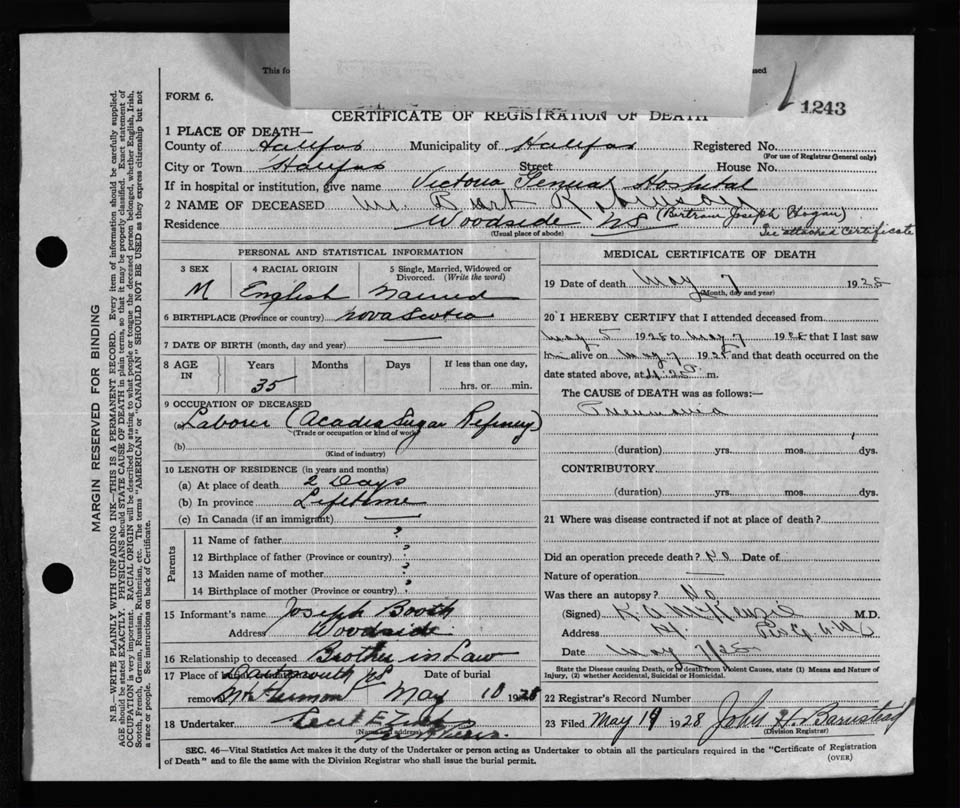 This fo
used
FORM 6.
1243
CERTIFICATE OF REGISTRATION OF DEATH
1 PLACE OF DEATH—
County of Halifax Municipality of Halifax Registered No.
(For use of Registrar General only)
City or Town Halifax Street House No.
If in hospital or institution, give name Victoria General Hospital
2 NAME OF DECEASED Mr. Burt Robinson
(Bertram Joseph Hogan)
Residence Woodside NS
See attached certificate
(Usual place of abode)
PERSONAL AND STATISTICAL INFORMATION
3 SEX 4 RACIAL ORIGIN 5 Single, Married, Widowed or Divorced. (Write the word)
M English Married
6 BIRTHPLACE (Province or country) Nova Scotia
7 DATE OF BIRTH (month, day and year)
8 AGE IN Years Months Days If less than one day,
35 hrs. or min.
9 OCCUPATION OF DECEASED
(a) Labourer (Acadia Sugar Refinery)
(Trade or occupation or kind of work)
(b)
(Kind of industry)
10 LENGTH OF RESIDENCE (in years and months)
(a) At place of death 2 Days
(b) In province Lifetime
(c) In Canada (if an immigrant)
Parents
11 Name of father ?
12 Birthplace of father (Province or country) ?
13 Maiden name of mother ?
14 Birthplace of mother (Province or country) ?
15 Informant's name Joseph Booth
Address Woodside
16 Relationship to deceased Brother in Law
17 Place of burial Dartmouth NS Date of burial
removal Mt Hermon May 10 1928
18 Undertaker Cecil E.
(Name and address)
MEDICAL CERTIFICATE OF DEATH
19 Date of death May 7 1928
(Month, day and year)
20 I HEREBY CERTIFY that I attended deceased from
May 5 1928 to May 7 1928 that I last saw
him alive on May 7 1928 and that death occurred on the
date stated above, at 4.20 m.
The CAUSE of DEATH was as follows:—
Pneumonia
(duration) yrs. mos. dys.
CONTRIBUTORY
(duration) yrs. mos. dys.
21 Where was disease contracted if not at place of death?
Did an operation precede death? No Date of
Nature of operation
Was there an autopsy? No
(Signed) K.A. McKenzie M.D.
Address
Date May 7/28
State the Disease causing Death, or in death from Violent Causes, state (1) Means and Nature of
Injury, (2) whether Accidental, Suicidal or Homicidal.
22 Registrar's Record Number
23 Filed May 19 1928 John H. Barnstead
(Division Registrar)
SEC. 46—Vital Statistics Act makes it the duty of the Undertaker or person acting as Undertaker to obtain all the particulars required in the "Certificate of Registration
of Death" and to file the same with the Division Registrar who shall issue the burial permit.
(OVER)
MARGIN RESERVED FOR BINDING
N.B.—WRITE PLAINLY WITH UNFADING INK—THIS IS A PERMANENT RECORD. Every item of information should be carefully supplied.
AGE should be stated EXACTLY. PHYSICIANS should STATE CAUSE OF DEATH in plain terms, so that it may be properly classified. Exact statement of
OCCUPATION is very important. RACIAL ORIGIN will be described by stating to what people or tongue the deceased person belonged, whether English, Irish,
Scotch, French, German, Russian, Ruthenian, etc. The terms "AMERICAN" or "CANADIAN" SHOULD NOT BE USED as they express citizenship but not
a race or people. See instructions on back of Certificate.